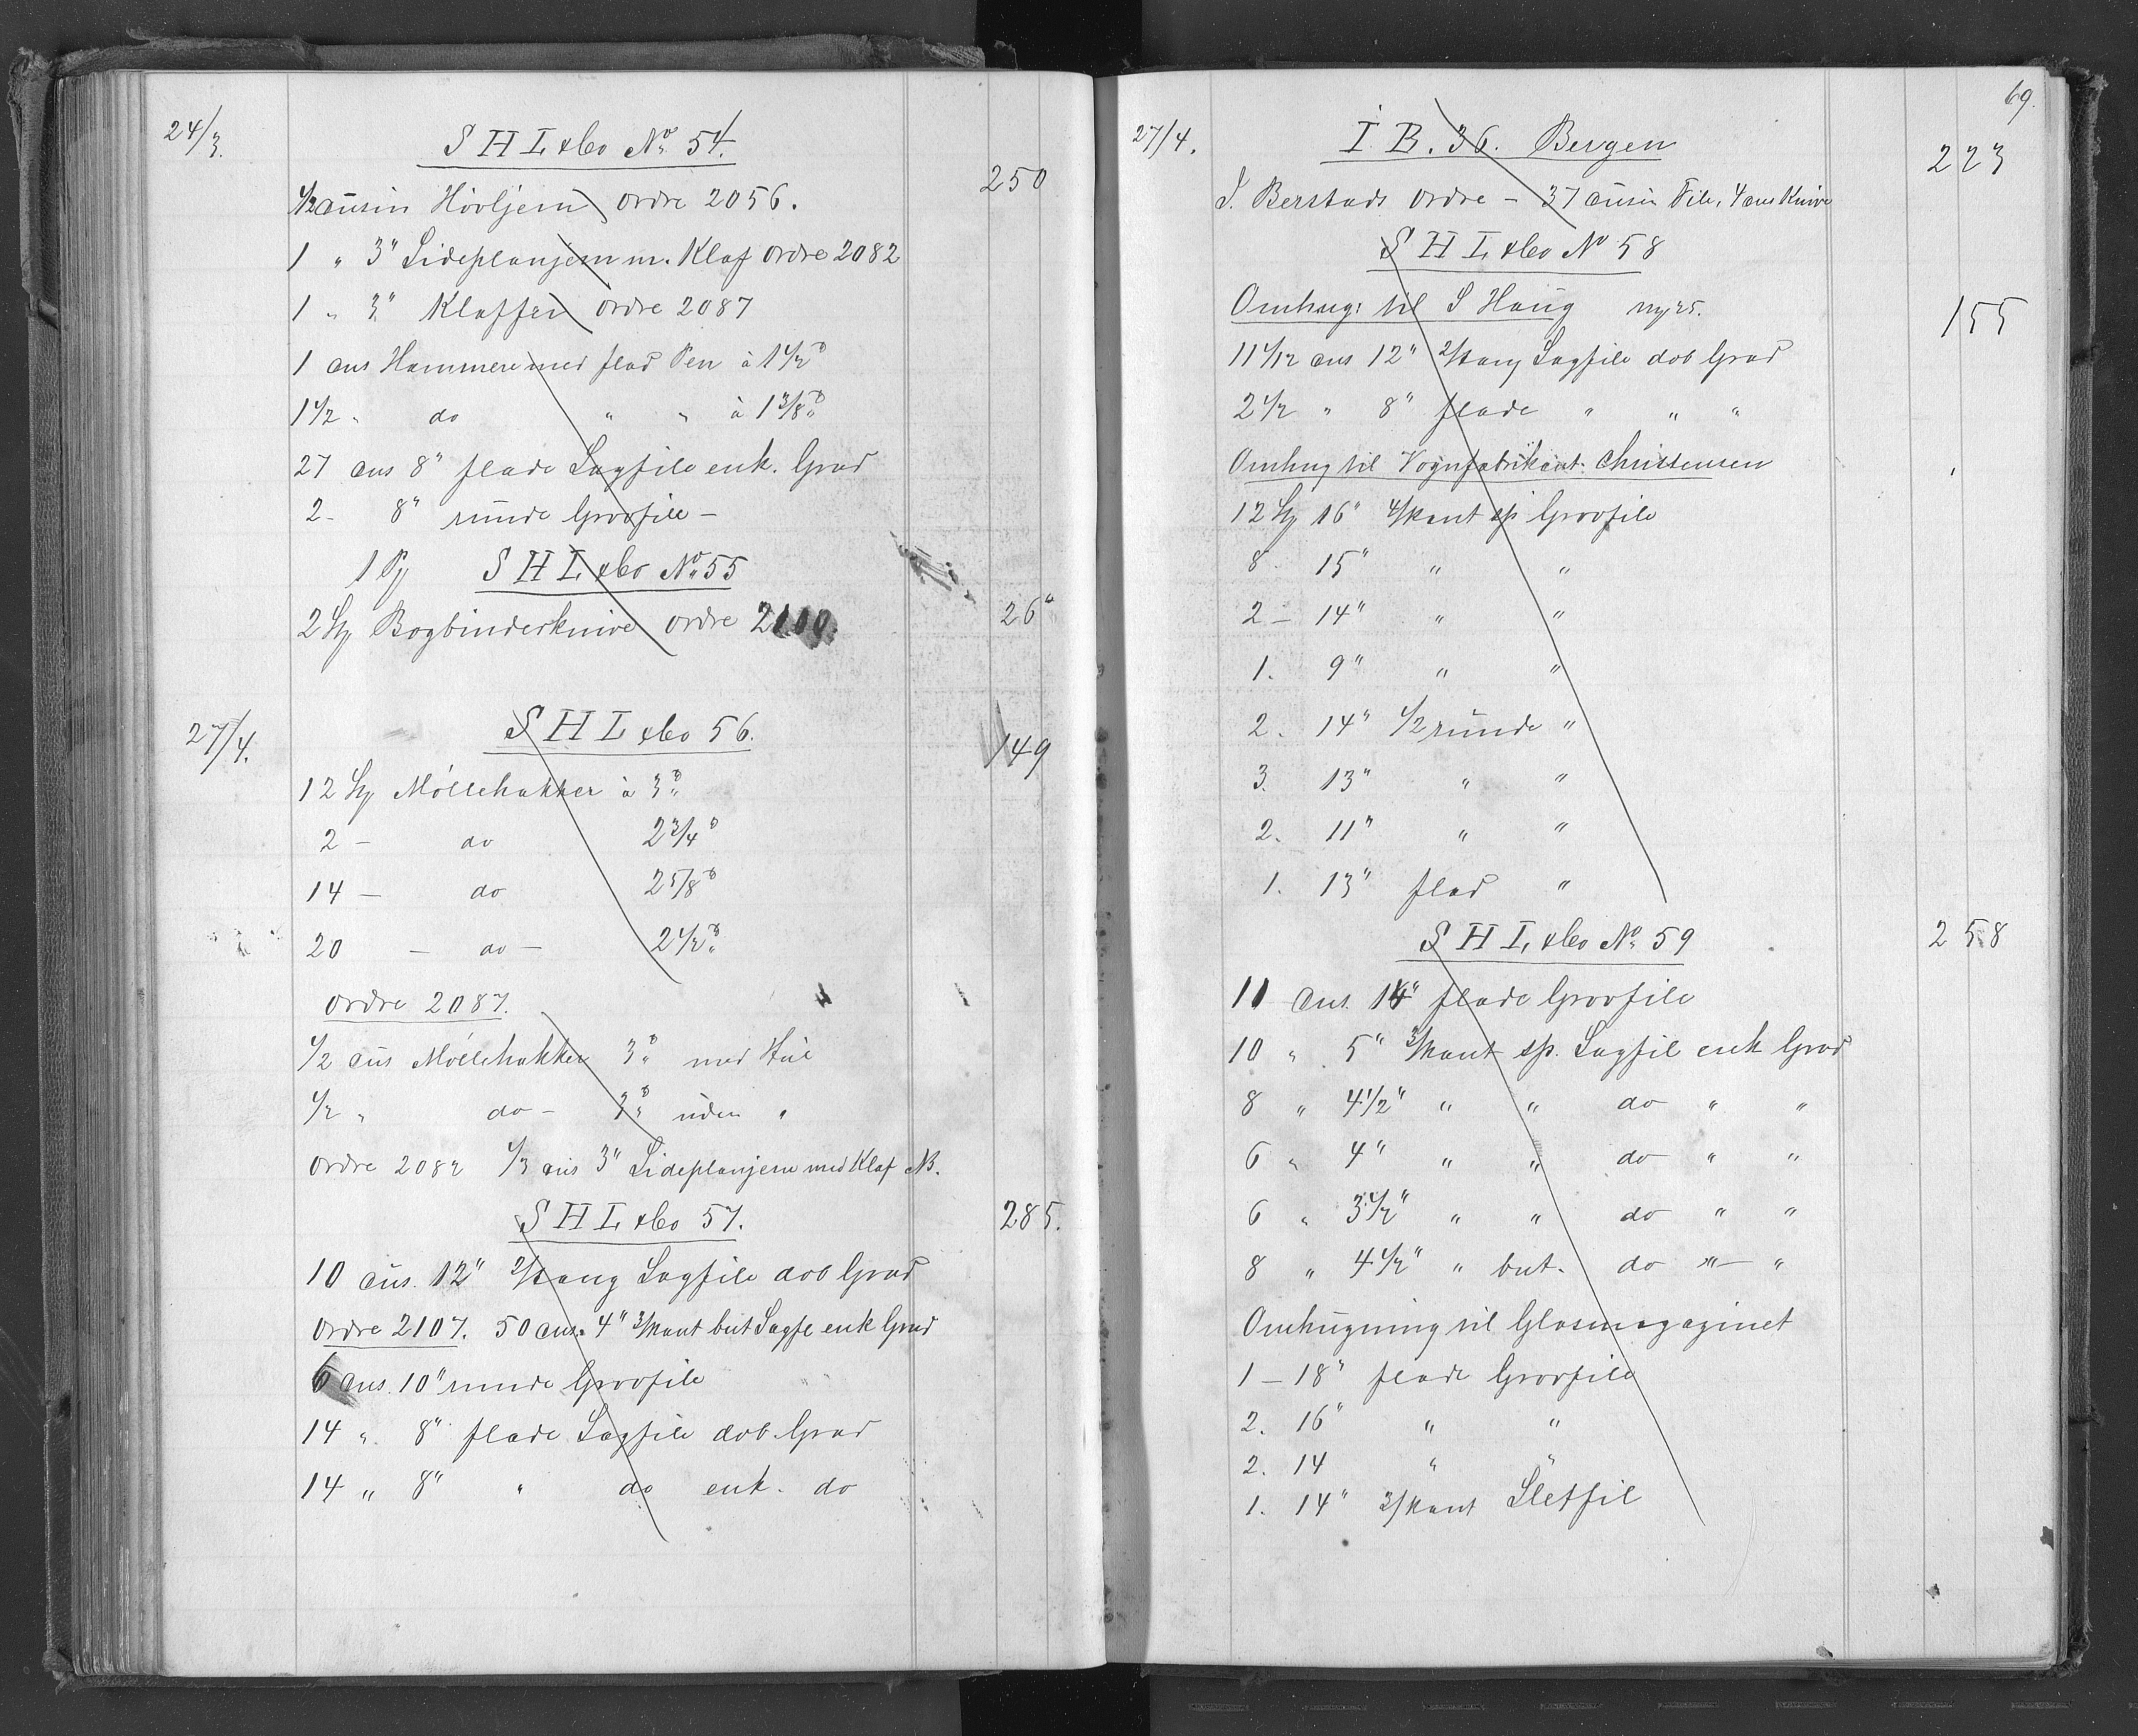 24/3.
S H L & Co No 54.
250
1/2 dusin Høvljern ordre 2056.
1 " 3" Sideplanjern m. Klaf ordre 2082
1 " 3" Klaffer ordre 2087
1 dus Hammere med flad Pen à 1 1/2 ℔
1 1/2 " do " " à 1 3/8 ℔
27 dus 8" flade Sagfile enk. Grad
2 - 8" runde Grovfile -
1 Pz S H L & Co No 55
2 Stz Bogbinderknive ordre 2100.
26"
27/4.
S H L & Co 56.
149
12 Stz Møllehakker à 3 ℔
2 - do 2 3/4 ℔
14 - do 2 5/8 ℔
20 - do - 2 1/2 ℔
ordre 2087.
1/2 dus Møllehakker 3 ℔ med Hul
1/2 " do - 3 ℔ uden "
ordre 2082 1/3 dus 3" Sideplanjern med Klaf NB.
S H L & Co 57.
285.
10 dus. 12" 2/kang Sagfile dob Grad
Ordre 2107. 50 dus. 4" 3/kant but Sagfl enk Grad
6 dus. 10" runde Grovfile
14 " 8" flade Sagfile dob. Grad
14 " 8" " do enk. do
69.
27/4.
I. B. 36. Bergen
223
I. Berstads ordre - 37 dusin File, 4 dus Knive
S H L & Co No 58
Omhug: til S Haug
155
11 1/12 dus 12" 2/kang Sagfile dob Grad
2 1/2 " 8" flade " " "
Omhug til Vognfabrikant: Christensen
12 Stz 16" 4/kant sp Grovfile
8 . 15" " "
2 - 14" " "
1. 9" " "
2. 14" 1/2 runde "
3. 13" " "
2. 11" " "
1. 13" flad "
S H L & Co No 59
258
11 dus. 14" flade Grovfile
10 " 5" 3/kant sp. Sagfil enk Grad
8 " 4 1/2" " " do " "
6 " 4" " " do " "
6 " 3 1/2" " " do " "
8 " 4 1/2" " but. do " - "
Omhugning til Glasmagazinet
1 - 18" flade Grovfile
2. 16" " "
2. 14 " "
1. 14" 3/kant Sletfil